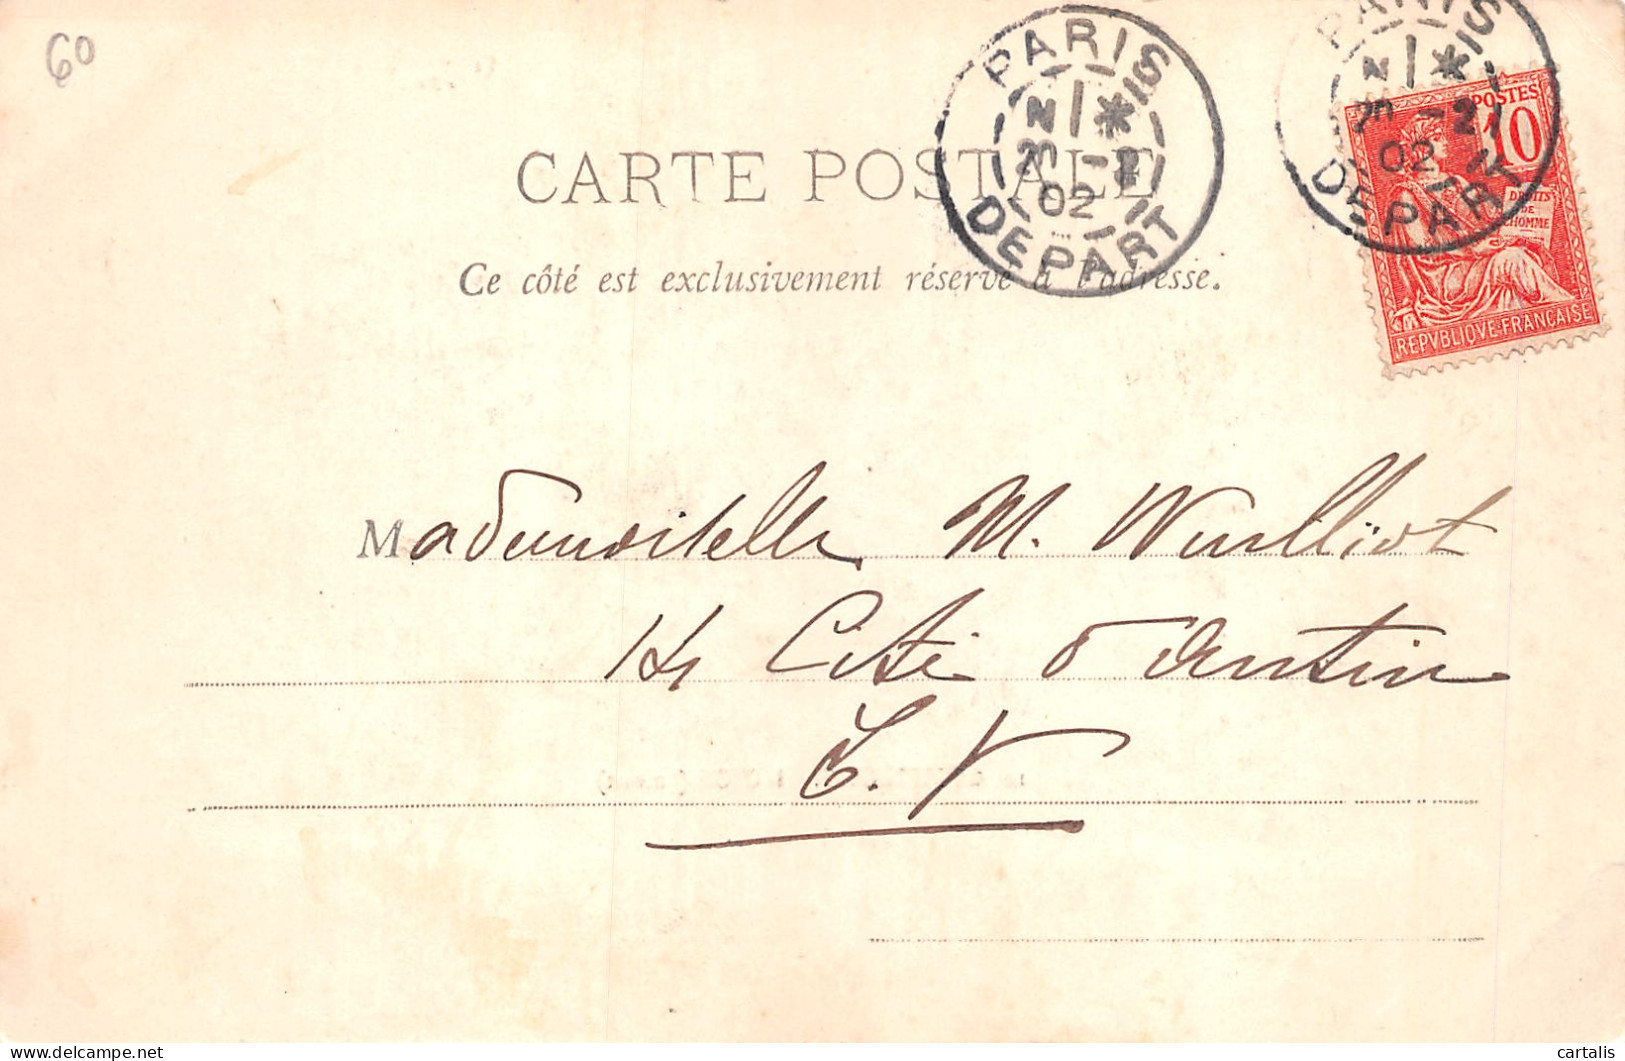 60
PARIS
20 -2
02
DEPART
PARIS
20 -2
02
DEPART
POSTES
10
DROITS
DE
L'HOMME
REPVBLIQVE·FRANÇAISE
CARTE POSTALE
Ce côté est exclusivement réservé à l'adresse.
Mademoiselle M. Wuilliot
14 Cité d'Antin
E.V
www.delcampe.net
cartalis